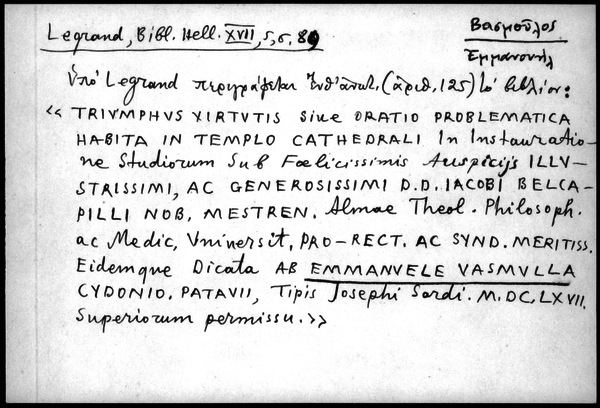 Legrand, Bibl. Hell. XVII, 5, σ. 89
Βασμοῦλος
Ἐμμανουήλ
Ὑπό Legrand περιγράφεται (ἀριθ. 125) τό βιβλίον:
«TRIVMPHVS VIRTVTIS Siue ORATIO PROBLEMATICA
HABITA IN TEMPLO CATHEDRALI In Instauratio-
ne Studiorum Sub Fœlicissimis Auspicijs ILLV-
STRISSIMI, AC GENEROSISSIMI D.D. IACOBI BELCA-
PILLI NOB. MESTREN. Almae Theol. Philosoph.
ac Medic, Vniuersit, PRO-RECT. AC SYND. MERITISS.
Eidemque Dicata AB EMMANVELE VASMVLLA
CYDONIO. PATAVII, Tipis Josephi Sardi. M.DC,LXVII.
Superiorum permissu.»